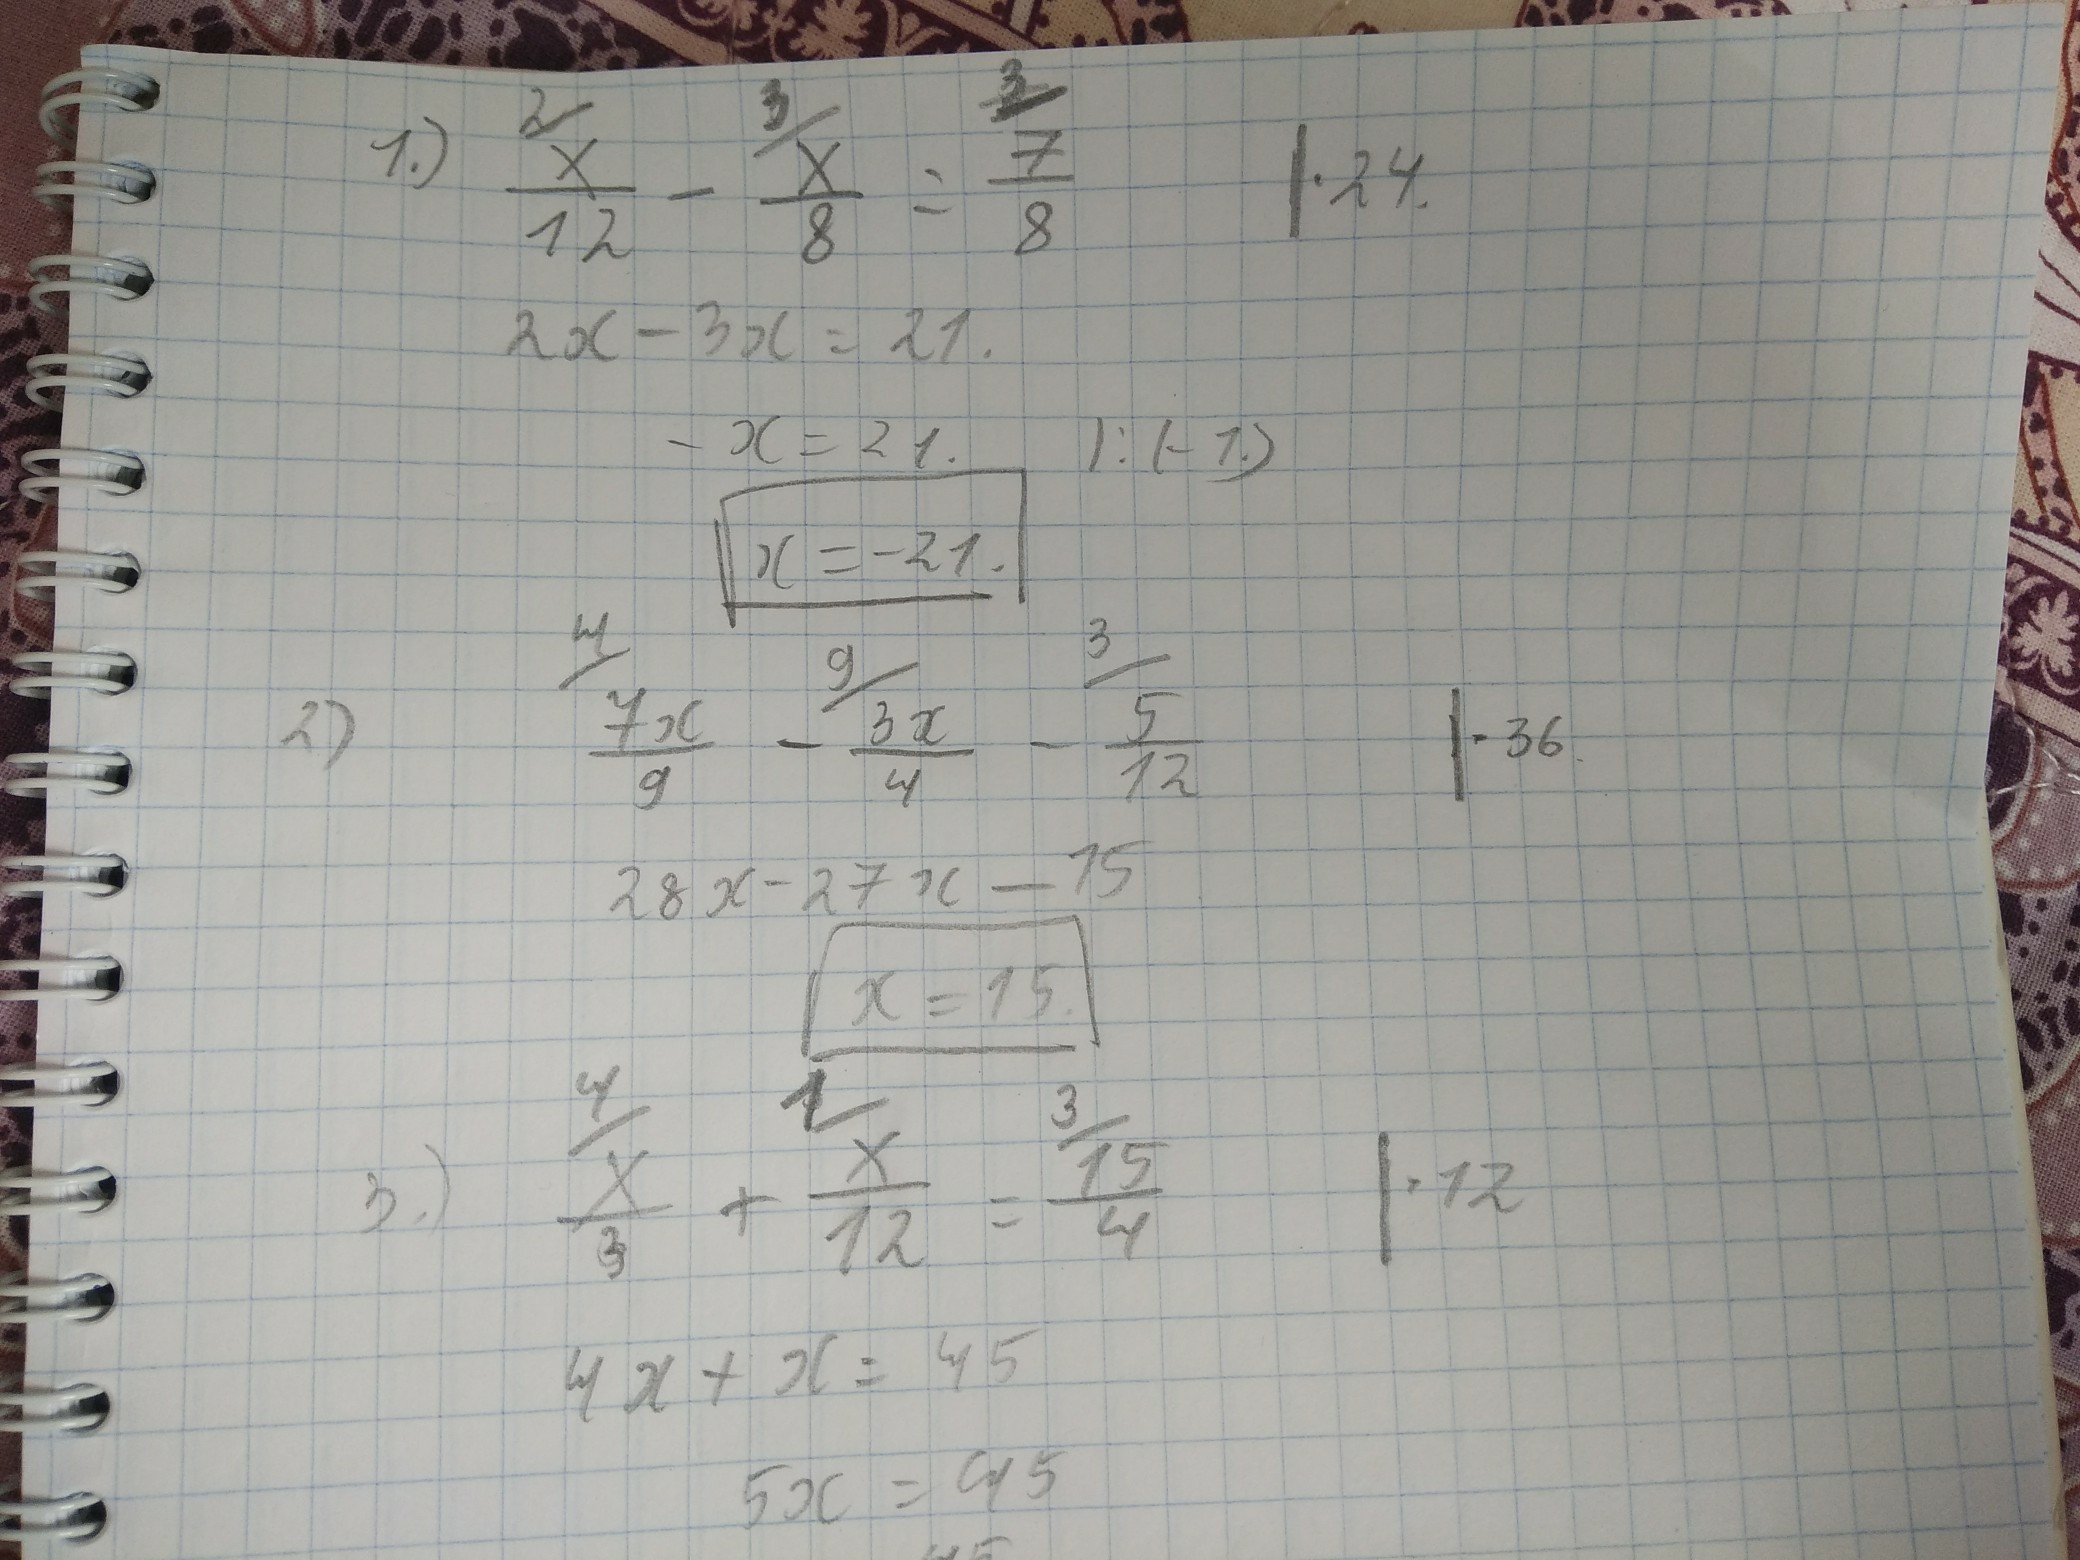 1.) 2/ x/12 - 3/ x/8 = 3/ 7/8 |·24.
2x - 3x = 21.
- x = 21. |:(-1.)
x = -21.
2) 4/ 7x/9 - 9/ 3x/4 - 3/ 5/12 |·36.
28x - 27x — 15
x = 15.
3.) 4/ x/3 + 1/ x/12 = 3/ 15/4 |·12
4x + x = 45
5x = 45
45